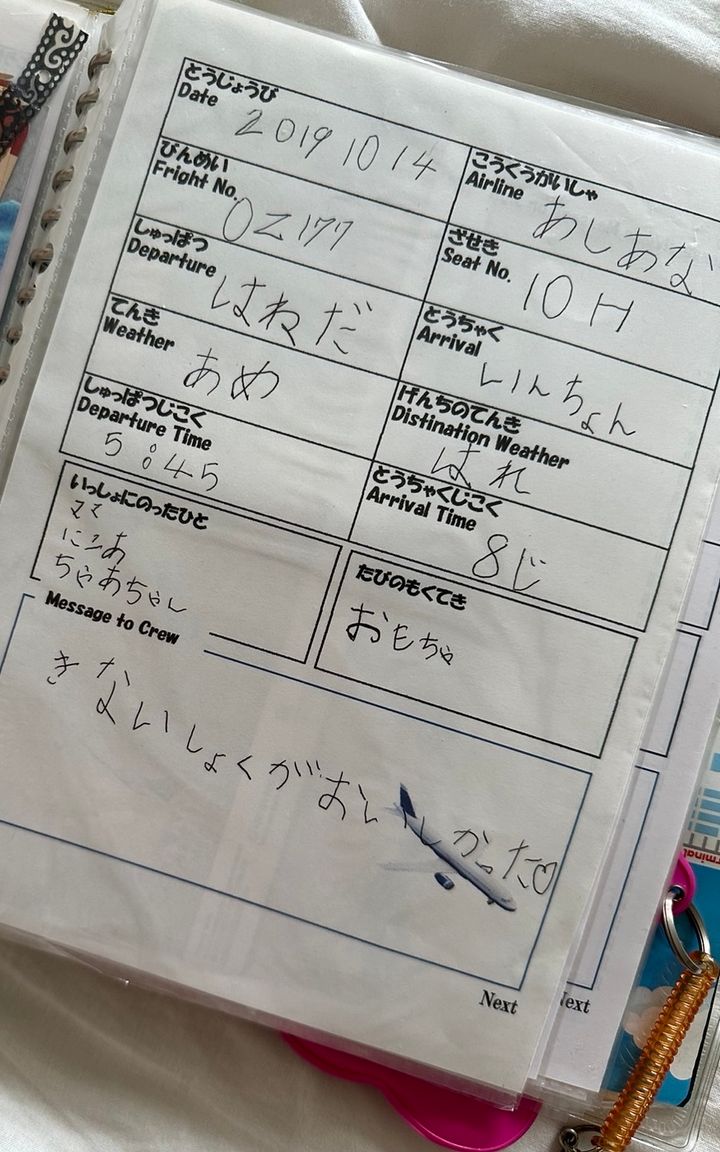 とうじょうび
Date
2019 10 14
こうくうがいしゃ
Airline
あしあな
びんめい
Fright No.
OZ177
ざせき
Seat No.
10H
しゅっぱつ
Departure
はねだ
とうちゃく
Arrival
いんちょん
てんき
Weather
あめ
げんちのてんき
Distination Weather
はれ
しゅっぱつじこく
Departure Time
5:45
とうちゃくじこく
Arrival Time
8じ
いっしょにのったひと
ママ
ちゃあちゃん
たびのもくてき
おもちゃ
Message to Crew
きないしょくがおいしかった♡
Next
Next